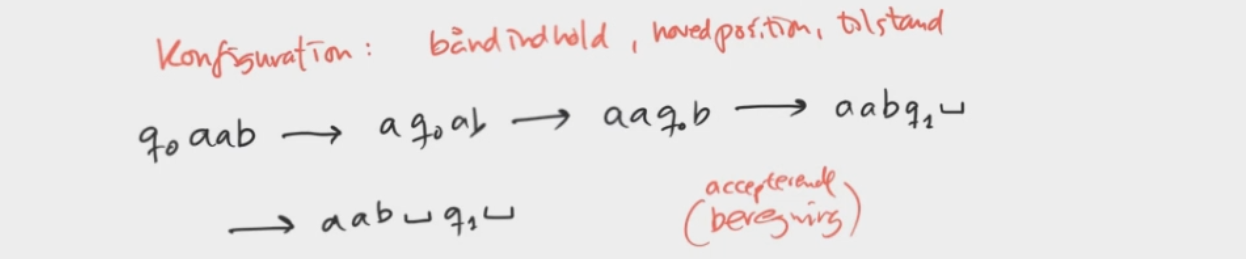 Konfiguration: båndindhold, hovedposition, tilstand
q₀aab → aq₀ab → aaq₀b → aabq₁␣
→ aab␣q₁␣
(accepterende beregning)